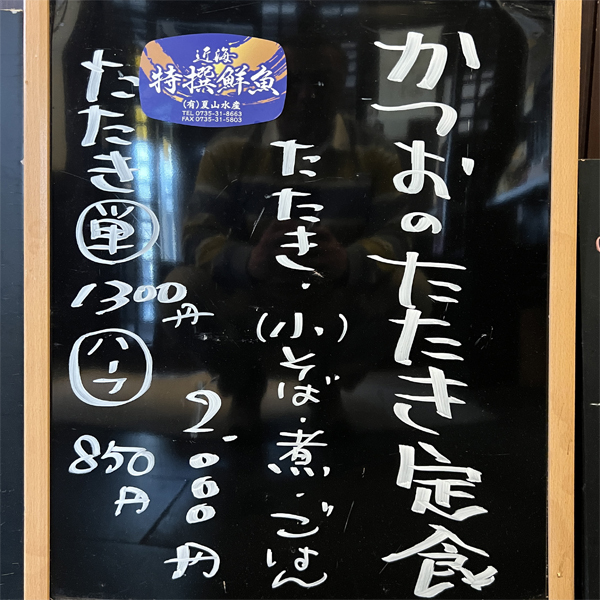 かつおのたたき定食
たたき・(小)そば・煮・ごはん
2.000円
近海
特撰鮮魚
(有)夏山水産
TEL 0735-31-8663
FAX 0735-31-5803
たたき単
1300円
ハーフ
850円